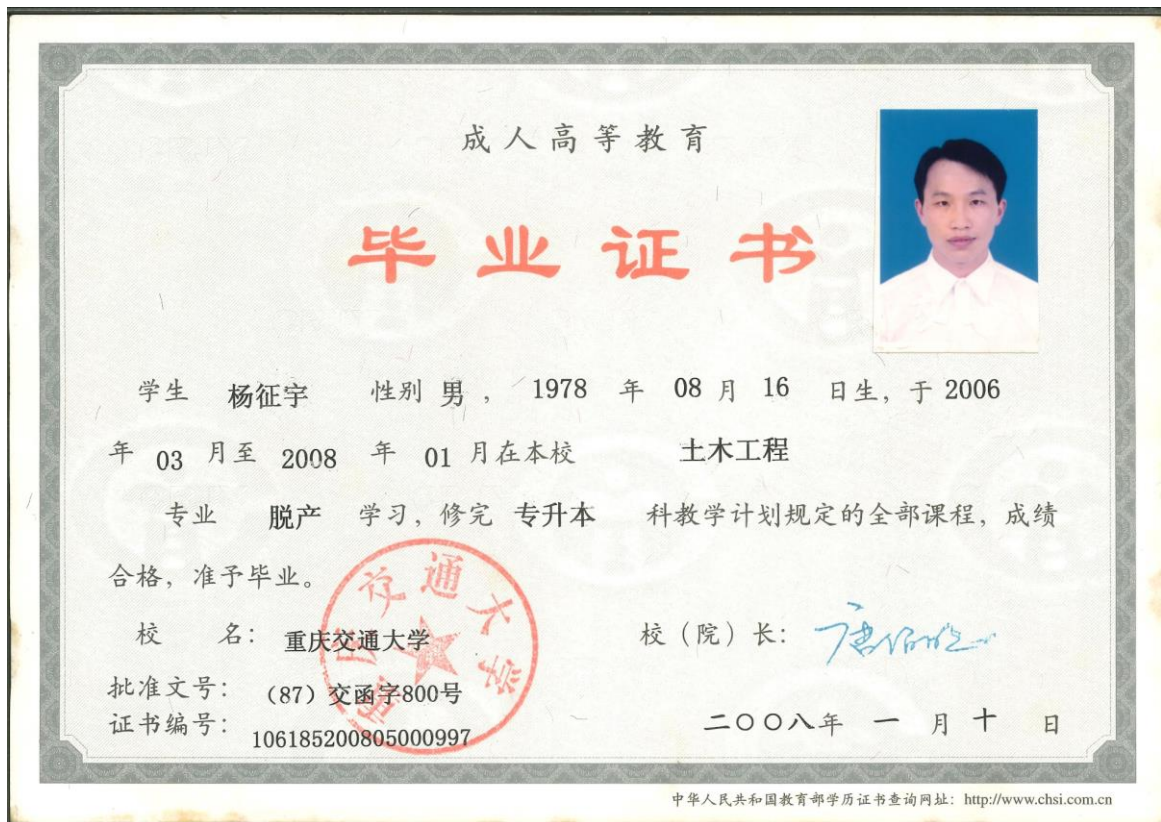 成人高等教育
毕业证书
学生 杨征宇 性别 男 , 1978 年 08 月 16 日生, 于 2006
年 03 月至 2008 年 01 月在本校 土木工程
专业 脱产 学习, 修完 专升本 科教学计划规定的全部课程, 成绩
合格, 准予毕业。
校 名: 重庆交通大学 校(院)长:
批准文号: (87)交函字800号
证书编号: 106185200805000997
二〇〇八年 一 月 十 日
重庆交通大学
中华人民共和国教育部学历证书查询网址: http://www.chsi.com.cn